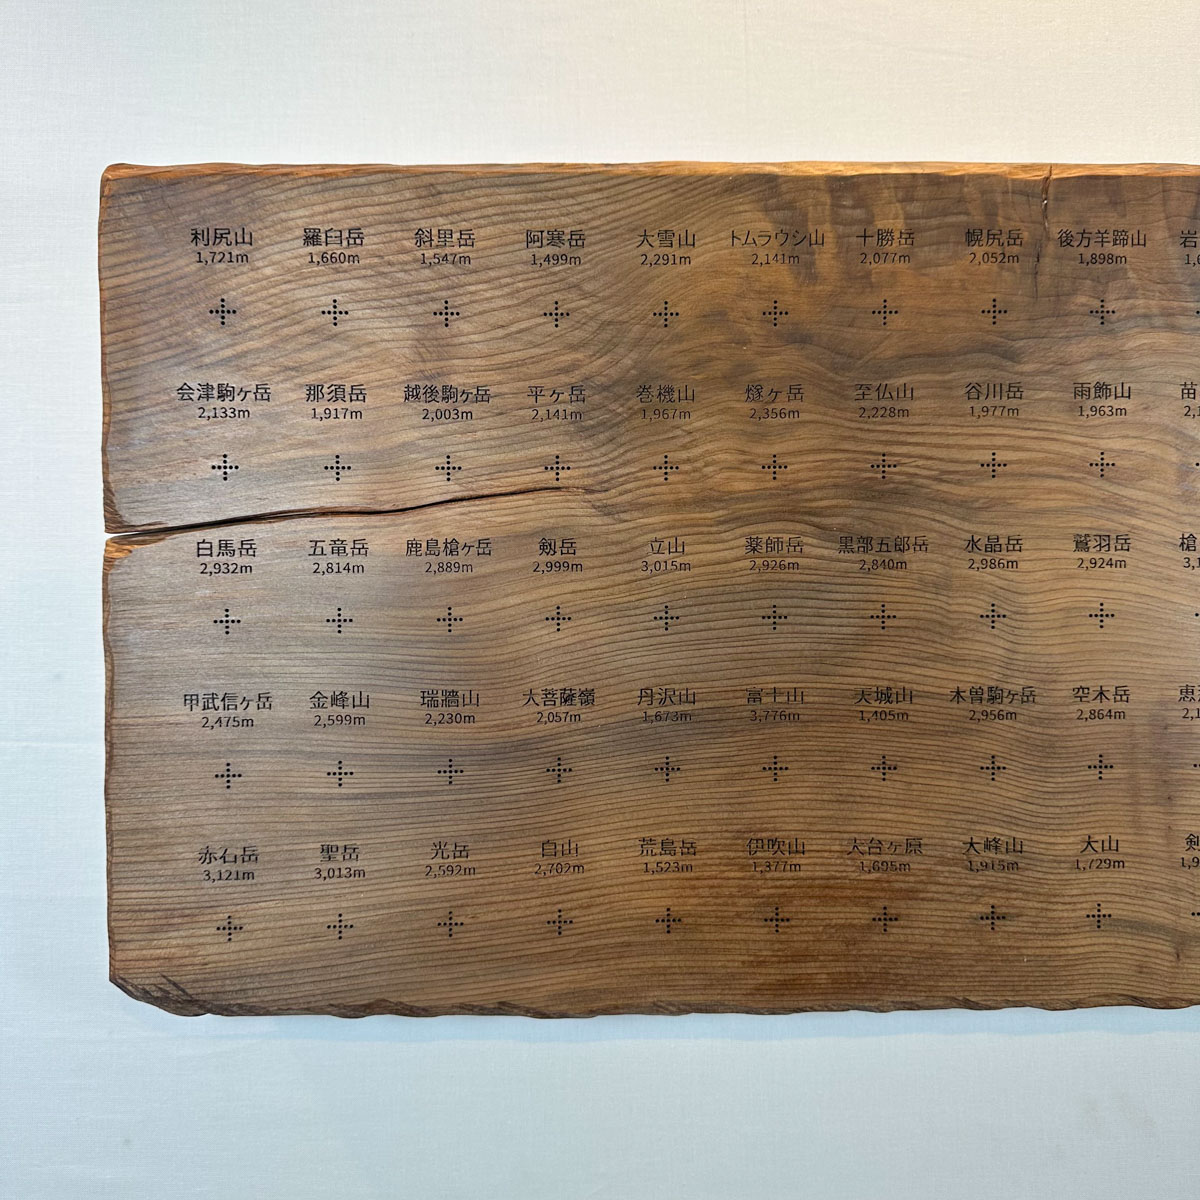 利尻山 羅臼岳 斜里岳 阿寒岳 大雪山 トムラウシ山 十勝岳 幌尻岳 後方羊蹄山 岩
1,721m 1,660m 1,547m 1,499m 2,291m 2,141m 2,077m 2,052m 1,898m
会津駒ヶ岳 那須岳 越後駒ヶ岳 平ヶ岳 巻機山 燧ヶ岳 至仏山 谷川岳 雨飾山 苗
2,133m 1,917m 2,003m 2,141m 1,967m 2,356m 2,228m 1,977m 1,963m
白馬岳 五竜岳 鹿島槍ヶ岳 剱岳 立山 薬師岳 黒部五郎岳 水晶岳 鷲羽岳 槍
2,932m 2,814m 2,889m 2,999m 3,015m 2,926m 2,840m 2,986m 2,924m
甲武信ヶ岳 金峰山 瑞牆山 大菩薩嶺 丹沢山 富士山 天城山 木曽駒ヶ岳 空木岳 恵
2,475m 2,599m 2,230m 2,057m 1,673m 3,776m 1,405m 2,956m 2,864m
赤石岳 聖岳 光岳 白山 荒島岳 伊吹山 大台ヶ原 大峰山 大山 剣
3,121m 3,013m 2,592m 2,702m 1,523m 1,377m 1,695m 1,915m 1,729m